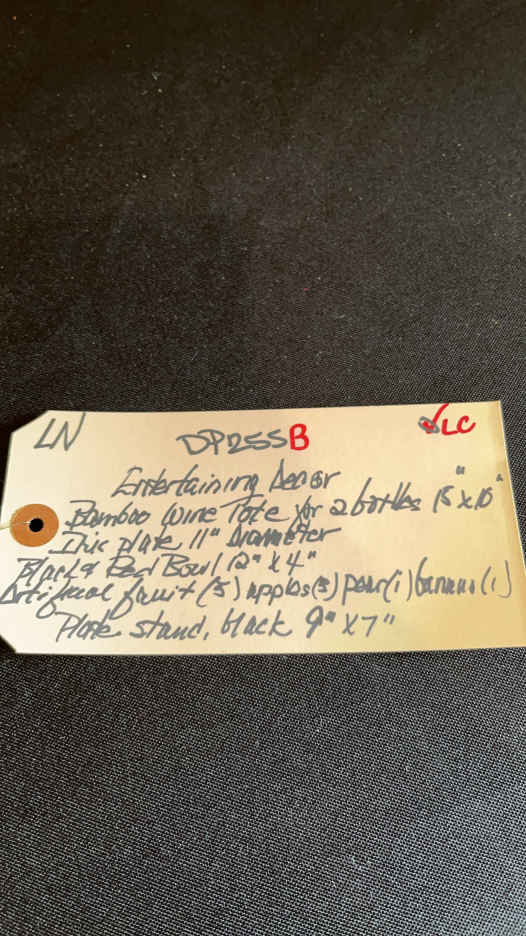 LN
DP255B
LC
Entertaining Decor
Bamboo Wine Tote for 2 bottles 15" x 10"
Iris plate, 11" Diameter
Black & Red Bowl 12" x 4"
Artificial fruit (5) apples (3) pear (1) banana (1)
Plate stand, black 9" x 7"